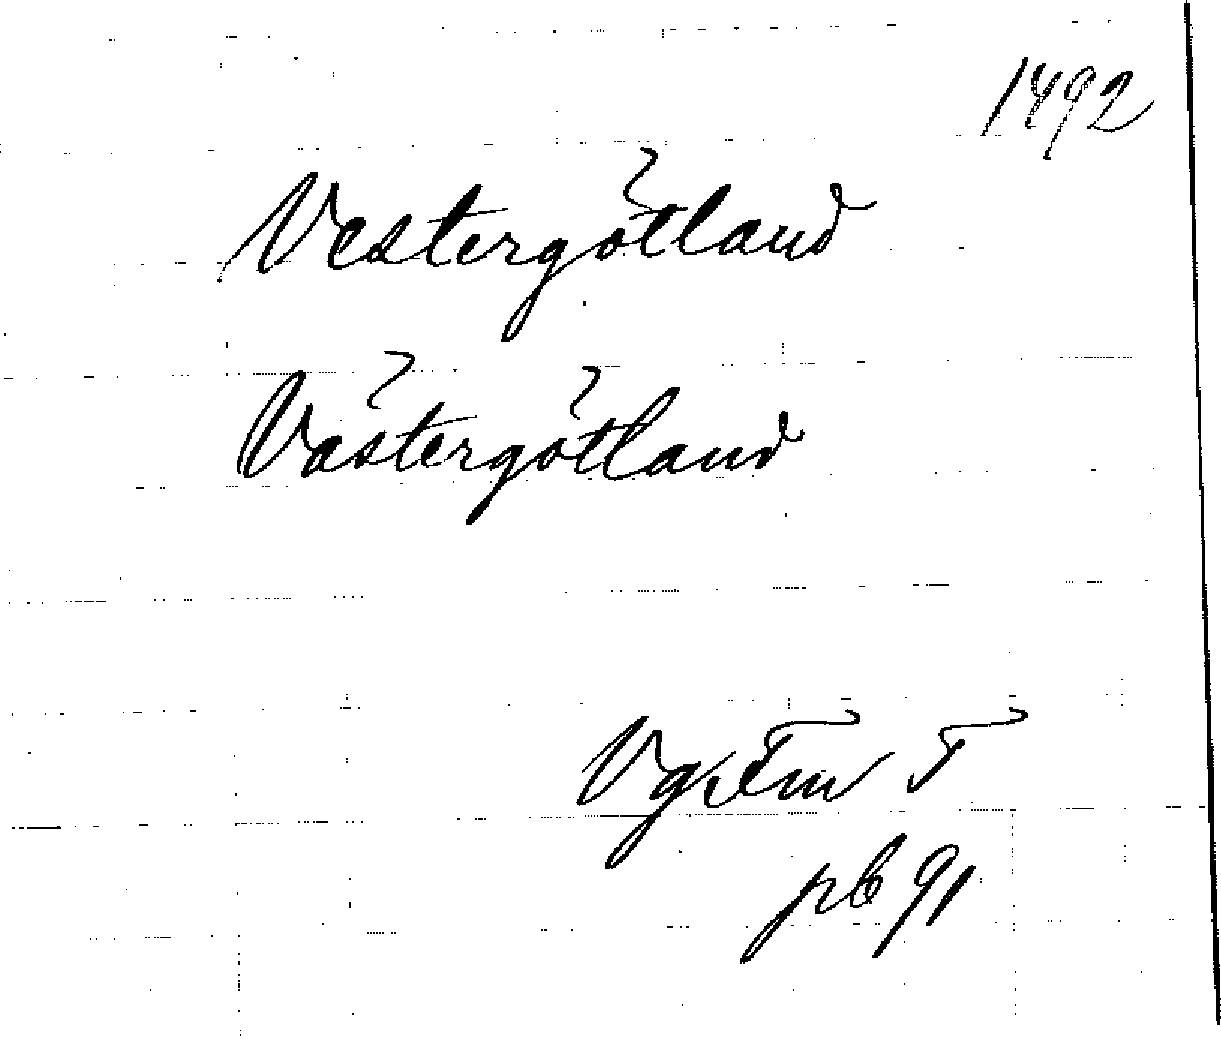 1492
Vestergötland
Västergötland
Vg Fm T
pb 91